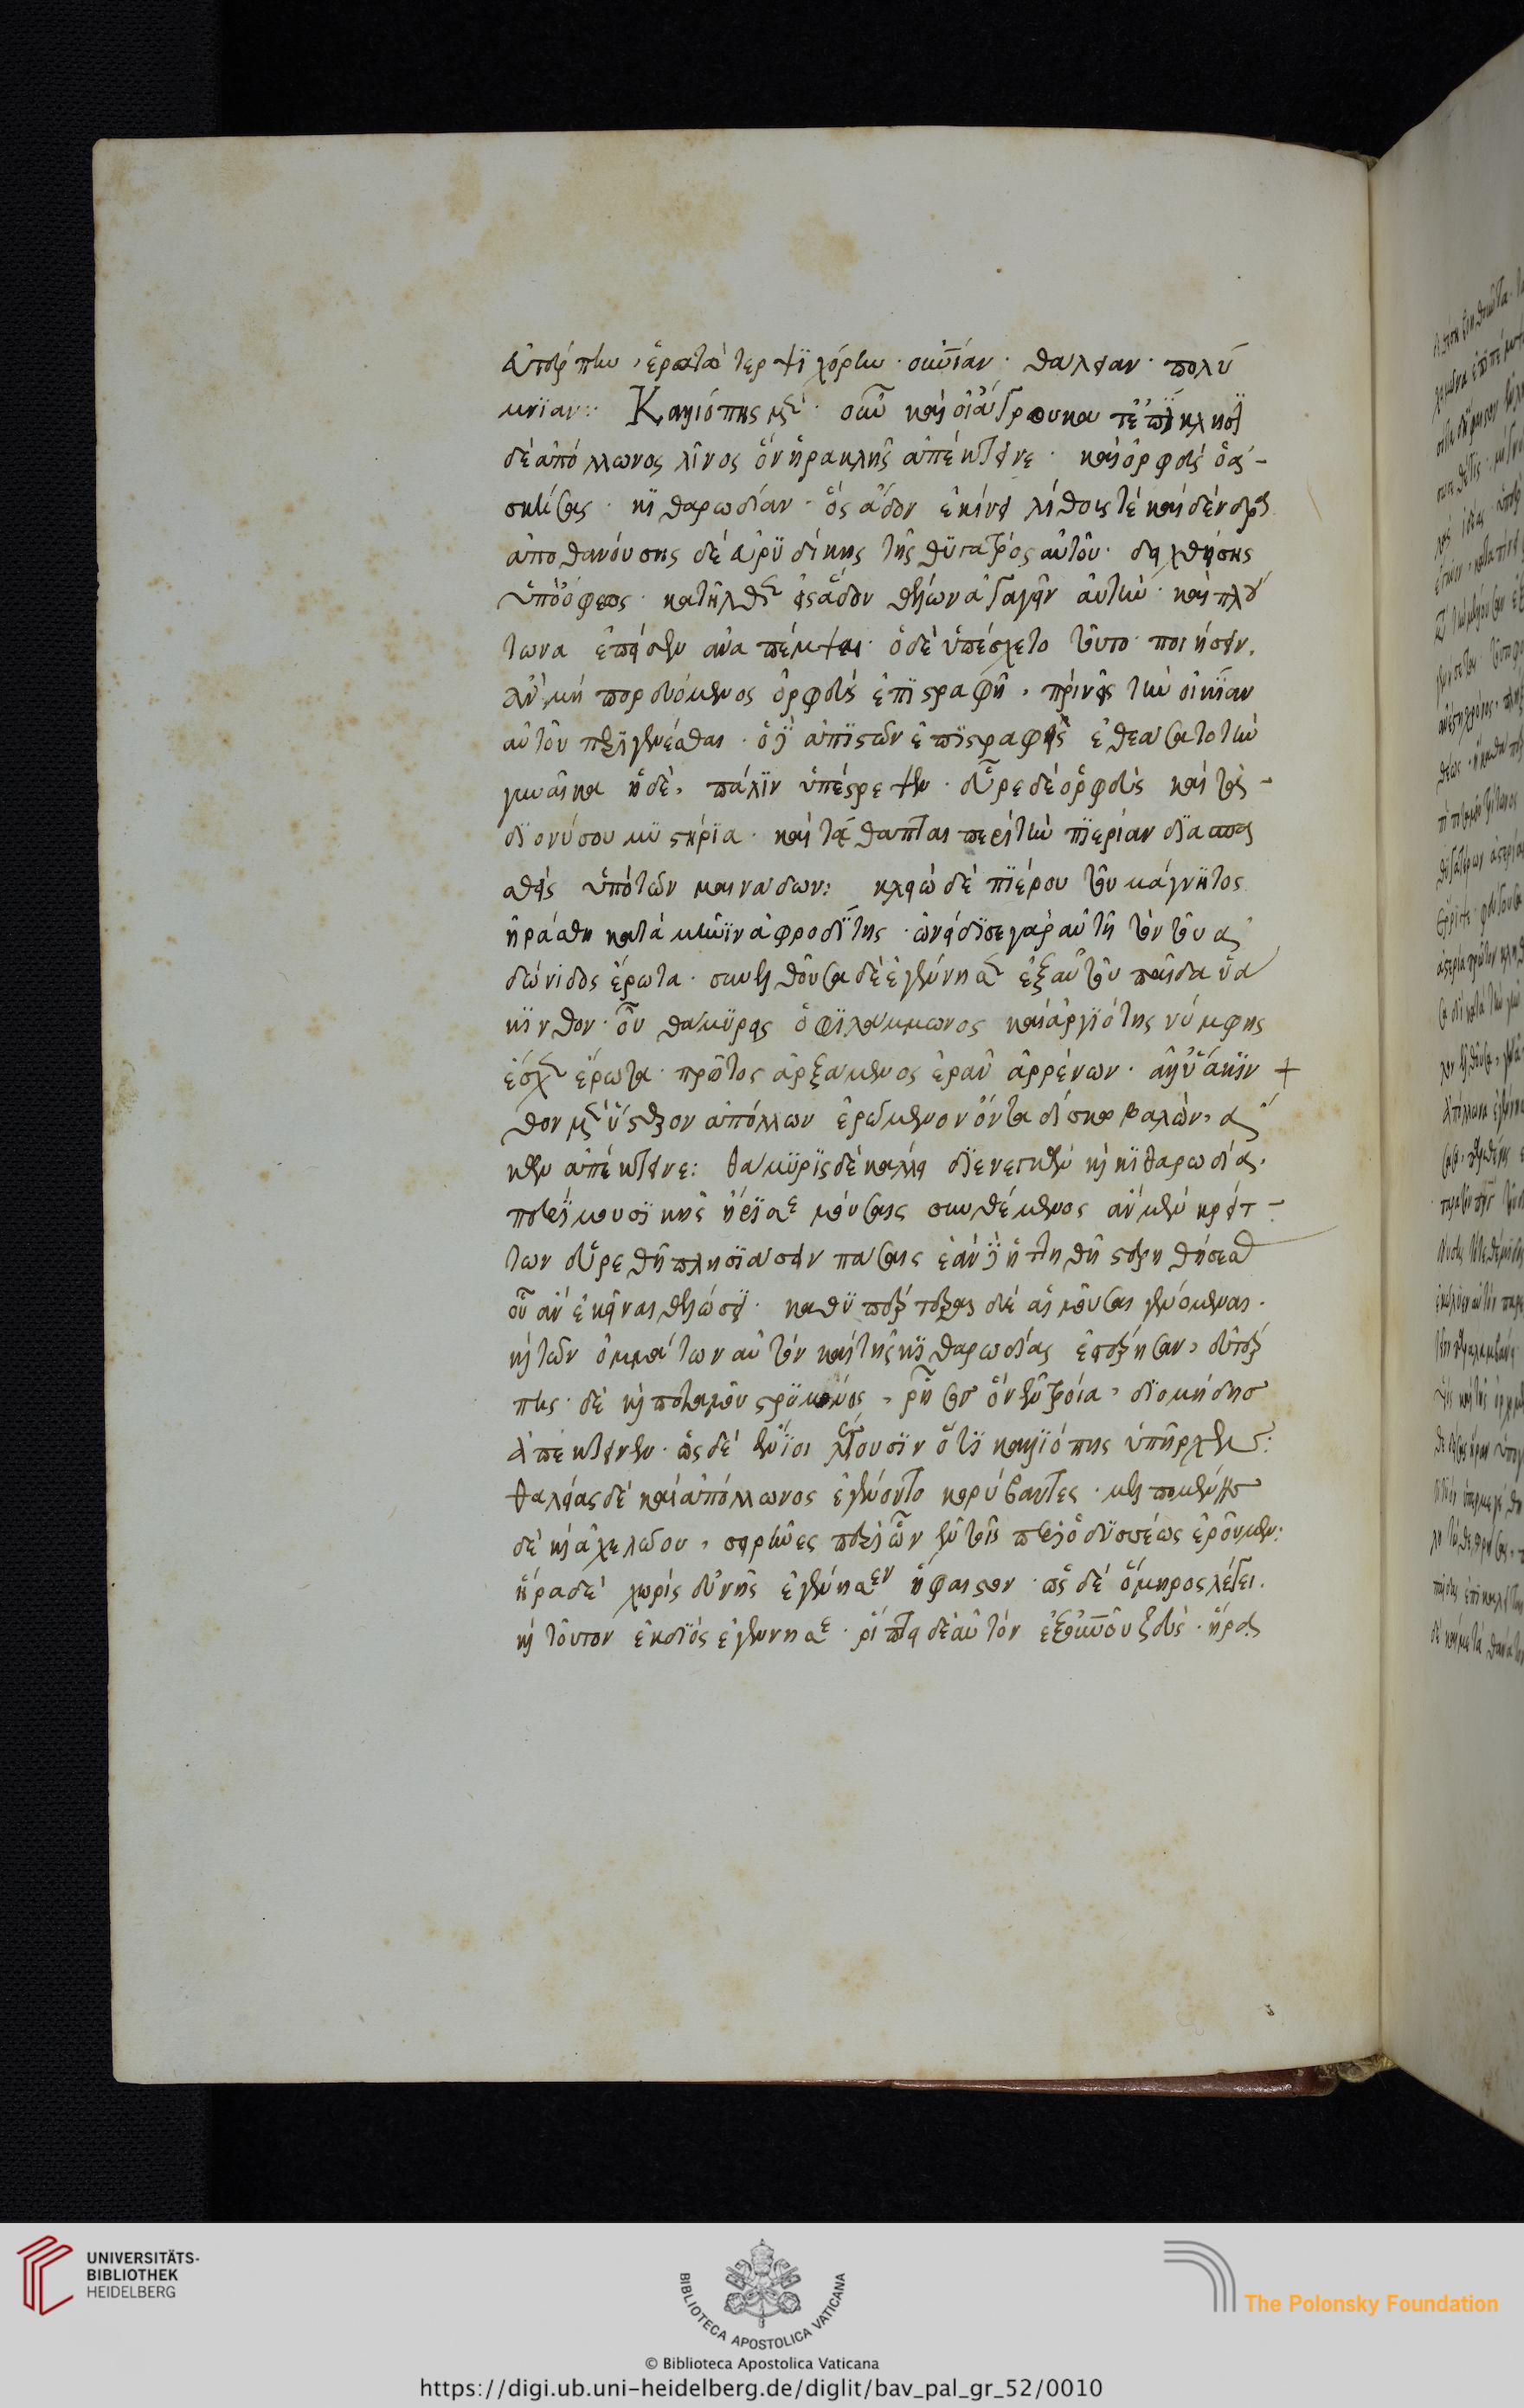 εὐτέρπην, ἐρατὼ τερψι χόρην. οὐρανίαν. θάλειαν. πολυ
μνϊαν: Καλλιόπης μὲν οὖν καὶ οἰάγρου κα
δὲ ἀπόλλωνος λῖνος ὃν ἡρακλῆς ἀπέκτεινε. καὶ ὀρφεὺς ὁ ἀ-
σκήσας. κϊθαρωδίαν. ὃς ἄδων ἐκίνει λίθους τὲ καὶ δένδρα
ἀποθανούσης δὲ εὐρϋδίκης τῆς θϋγατρὸς αὐτοῦ. δηχθείσης
ὑπὸ ὄφεως. κατῆλθεν εἰς ἄδου θέλων ἀγαγεῖν αὐτὴν. καὶ πλού
τωνα ἔπεισεν ἀνα πέμψαι. ὁ δὲ ὑπέσχετο τοῦτο ποιήσειν.
ἂν μὴ πορευόμενος ὀρφεὺς ἐπϊστραφῆ, πρὶν εἰς τὴν οἰκϊαν
αὐτοῦ παραγενέσθαι. ὁ δὲ ἀπϊστῶν ἐπϊστραφεὶς ἐθεάσατο τὴν
γυναῖκα ἡ δὲ, πάλϊν ὑπέστρεψεν. εὗρε δὲ ὀρφεὺς καὶ τὰ-
δϊονύσου μϋστήρϊα. καὶ τέθαπται περὶ τὴν πϊερίαν δϊασπα
σθεὶς ὑπὸ τῶν μαινάδων: κλειὼ δὲ πϊέρου τοῦ μάγνητος
ἠράσθη κατὰ μῆνϊν ἀφροδίτης. ὠνείδϊσε γὰρ αὐτῆ τὸν τοῦ ἀ
δώνιδος ἔρωτα. συνελθοῦσα δὲ ἐγέννησεν ἐξ αὐτοῦ παῖδα ὑά
κϊνθον. οὗ θάμϋρις ὁ φϊλάμμωνος καὶ ἀργϊόπης νύμφης
ἔσχεν ἔρωτα. πρῶτος ἀρξάμενος ἐρᾶν ἀρρένων. ἀλλ' ὑάκϊν
θον μὲν ὕστερον ἀπόλλων ἐρώμενον ὄντα δίσκω βαλὼν, ἄ
κων ἀπέκτεινε: θάμϋρϊς δὲ κάλλει δϊενεγκὼν καὶ κϊθαρωδία.
περὶ μουσϊκῆς ἤρϊσε μούσαις συνθέμενος ἂν μὲν κρείτ-
των εὑρεθῆ πλησϊάσειν πάσαις ἐὰν δὲ ἡττηθῆ στερηθήσεσθαι
οὗ ἂν ἐκεῖναι θέλωσϊ. καθϋπέρτεραι δὲ αἱ μοῦσαι γενόμεναι.
καὶ τῶν ὀμμάτων αὐτὸν καὶ τῆς κϊθαρωδίας ἐστέρησαν, εὐτέρ
πης. δὲ καὶ ποταμοῦ στρϋμόνος, ῥῆσος ὃν ἐν τροία, δϊομήδης
ἀπέκτεινεν. ὡς δὲ ἔνϊοι λέγουσϊν ὅτϊ καλλϊόπης ὑπῆρχεν:
θαλείας δὲ καὶ ἀπόλλωνος ἐγένοντο κορύβαντες. μελπομένης
δὲ καὶ ἀχελώου, σειρῆνες περὶ ὧν ἐν τοῖς περὶ ὀδϋσσέως ἐροῦμεν:
ἥρα δὲ χωρὶς εὐνῆς ἐγέννησεν ἥφαιστον. ὡς δὲ ὅμηρος λέγει.
καὶ τοῦτον ἐκ διὸς ἐγέννησε. ῥίπτει δὲ αὐτὸν ἐξ οὐρανοῦ ζεὺς. ἥρα
UNIVERSITÄTS-
BIBLIOTHEK
HEIDELBERG
BIBLIOTECA APOSTOLICA VATICANA
© Biblioteca Apostolica Vaticana
The Polonsky Foundation
https://digi.ub.uni-heidelberg.de/diglit/bav_pal_gr_52/0010